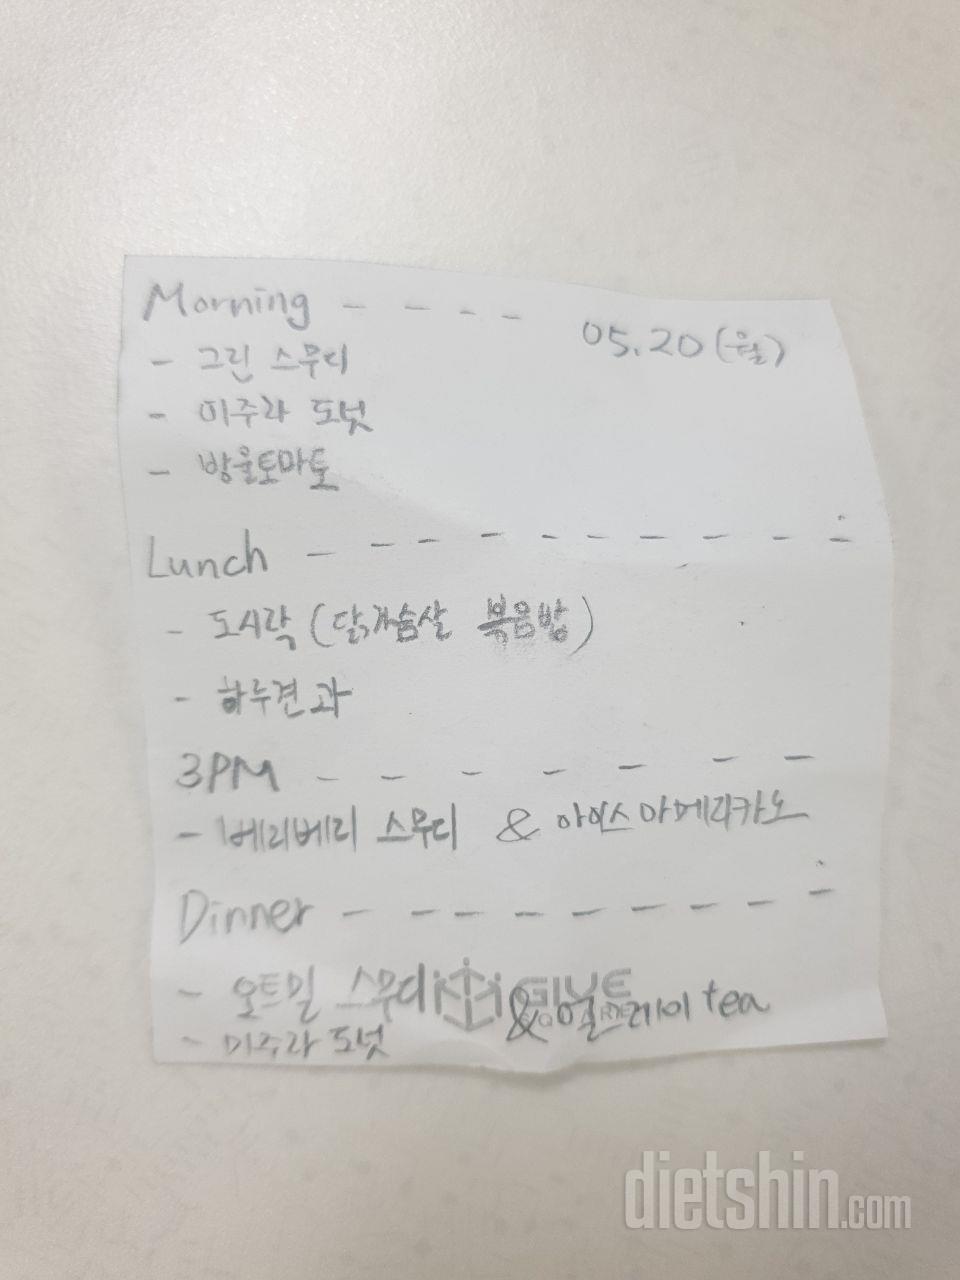 Morning - - - -
05.20 (월)
- 그린 스무디
- 미주라 도넛
- 방울토마토
Lunch - - - - - - - - -
- 도시락 (닭가슴살 볶음밥)
- 하루견과
3PM - - - - - - -
- 베리베리 스무디 & 아이스아메리카노
Dinner - - - - - - - - -
- 오트밀 스무디 & 얼그레이 tea
GIVE
- 미주라 도넛
dietshin.com